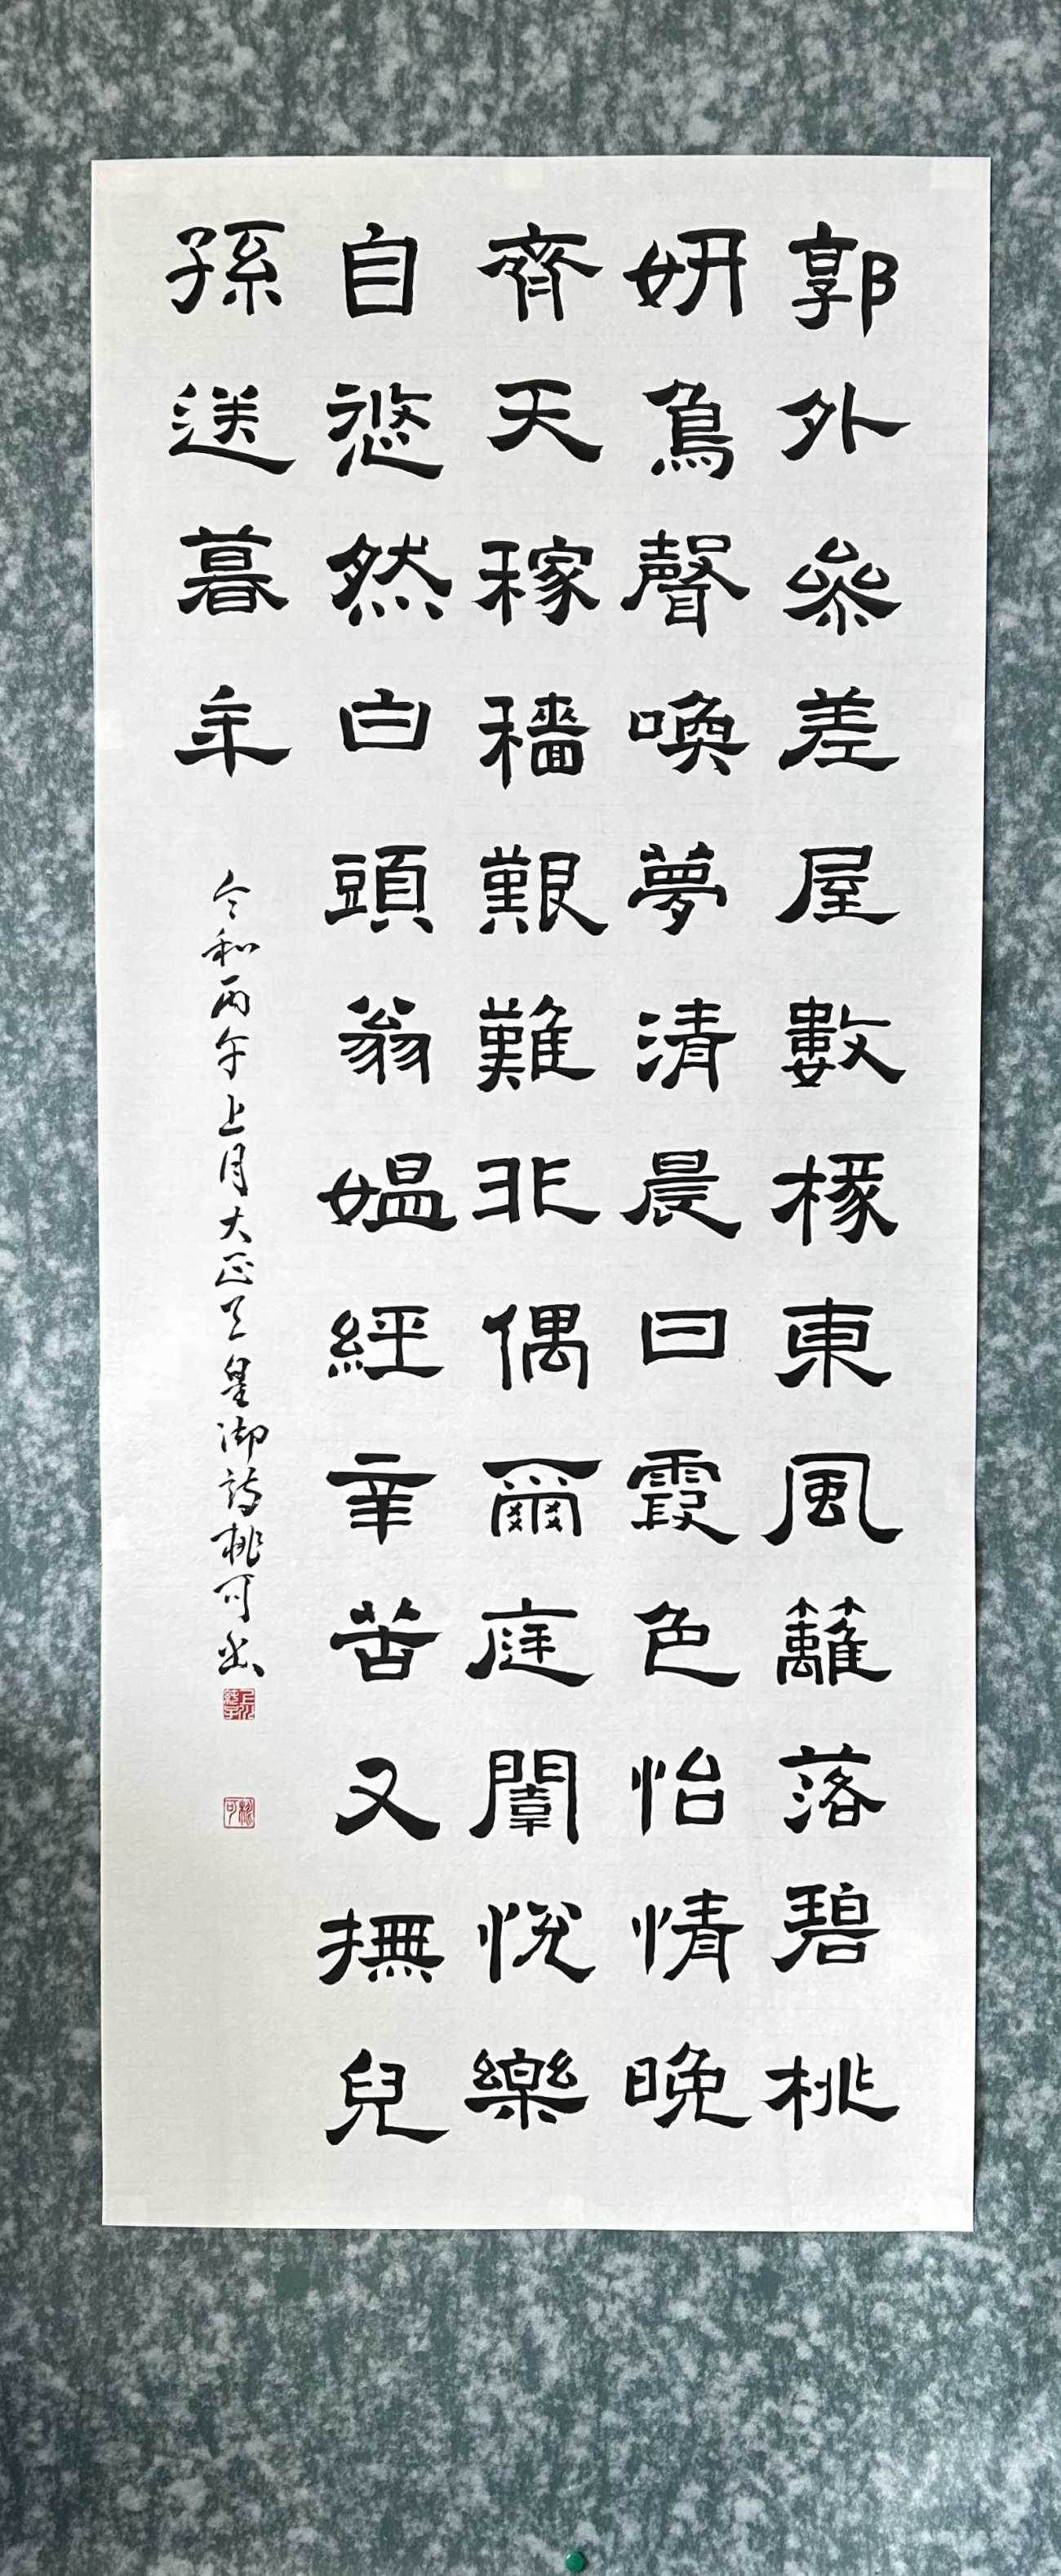 郭外參差屋數椽東風籬落碧桃
妍鳥聲喚夢清晨曰霞色怡情晚
齊天稼穡艱難非偶爾庭闈悅樂
自悠然白頭翁媼經辛苦又撫兒
孫送暮年
令和丙午上月大正天皇御詩桃可書
桃可